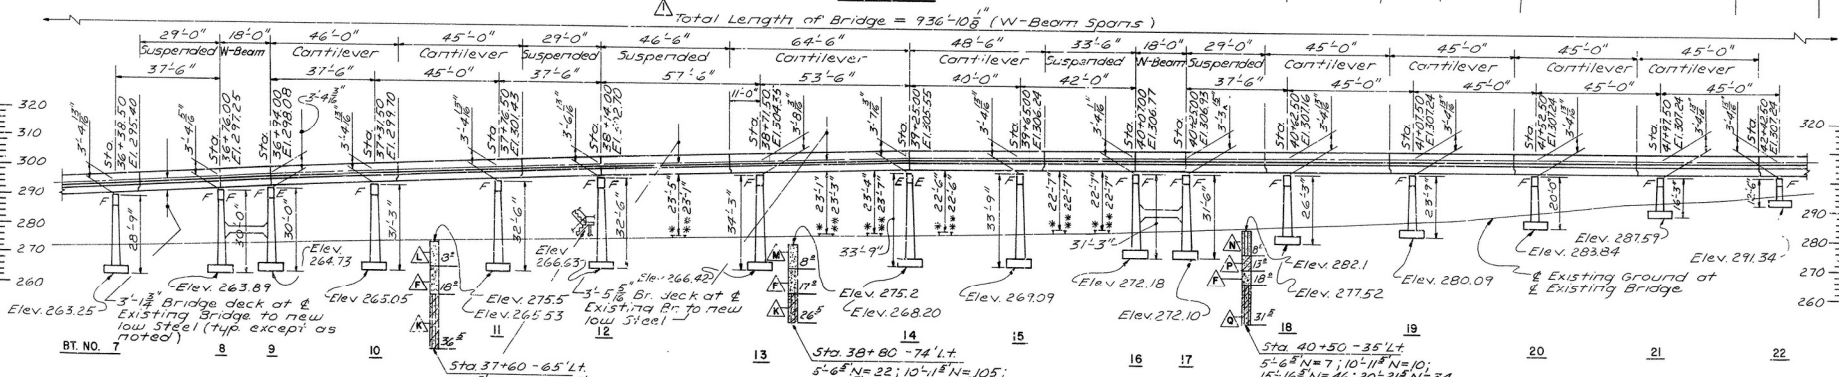 Total Length of Bridge = 936'-10 1/8" (W-Beam Spans)
29'-0" 18'-0" 46'-0" 45'-0" 29'-0" 46'-6" 64'-6" 48'-6" 33'-6" 18'-0" 29'-0" 45'-0" 45'-0" 45'-0" 45'-0"
Suspended W-Beam Cantilever Cantilever Suspended Suspended Cantilever Cantilever Suspended W-Beam Suspended Cantilever Cantilever Cantilever Cantilever
37'-6" 37'-6" 45'-0" 37'-6" 57'-6" 53'-6" 40'-0" 42'-0" 37'-6" 45'-0" 45'-0" 45'-0" 45'-0"
11'-0"
Sta. 36+38.50
El. 295.40
Sta. 36+76.00
El. 297.25
Sta. 36+94.00
El. 298.08
Sta. 37+31.50
El. 299.70
Sta. 37+76.50
El. 301.43
Sta. 38+14.00
Sta. 38+71.50
El. 304.55
Sta. 39+25.00
El. 305.55
Sta. 39+65.00
El. 306.24
Sta. 40+07.00
El. 306.77
Sta. 40+25.00
El. 306.93
Sta. 40+62.50
El. 307.16
Sta. 41+07.50
El. 307.24
Sta. 41+52.50
El. 307.24
Sta. 41+97.50
El. 307.24
Sta. 42+42.50
El. 307.24
320
310
300
290
280
270
260
320
310
290
280
270
260
F F F F F F F E E F F F F F F F F
28'-9" 30'-0" 30'-0" 31'-3" 32'-6" 32'-6" 34'-3" 33'-9" 33'-9" 31'-3" 31'-6" 26'-3" 23'-9" 20'-0" 16'-3" 12'-6"
* 23'-5"
** 23'-1"
* 23'-1"
** 23'-3"
* 23'-4"
** 23'-7"
* 22'-6"
** 22'-6"
* 22'-7"
** 22'-7"
* 22'-7"
** 22'-7"
Elev. 263.25
Elev. 263.89
Elev. 264.73
Elev. 265.05
Elev. 275.5
Elev. 265.53
Elev. 266.63
Elev. 266.42
Elev. 275.2
Elev. 268.20
Elev. 269.09
Elev. 272.18
Elev. 272.10
Elev. 282.1
Elev. 277.52
Elev. 280.09
Elev. 283.84
Elev. 287.59
Elev. 291.34
3'-1 3/4" Bridge deck at ℄
Existing Bridge to new
low Steel (typ. except as
noted)
3'-5 5/16" Br. deck at ℄
Existing Br. to new
low Steel
℄ Existing Ground at
℄ Existing Bridge
L F K
M F K
N P F Q
BT. NO. 7 8 9 10 11 12 13 14 15 16 17 18 19 20 21 22
Sta. 37+60 - 65' Lt.
Sta. 38+80 - 74' Lt.
5'-6⁵' N=22; 10'-11⁵' N=105;
Sta. 40+50 - 35' Lt.
5'-6⁵' N=7; 10'-11⁵' N=10;
15'-16⁵' N=46; 20'-21⁵' N=34